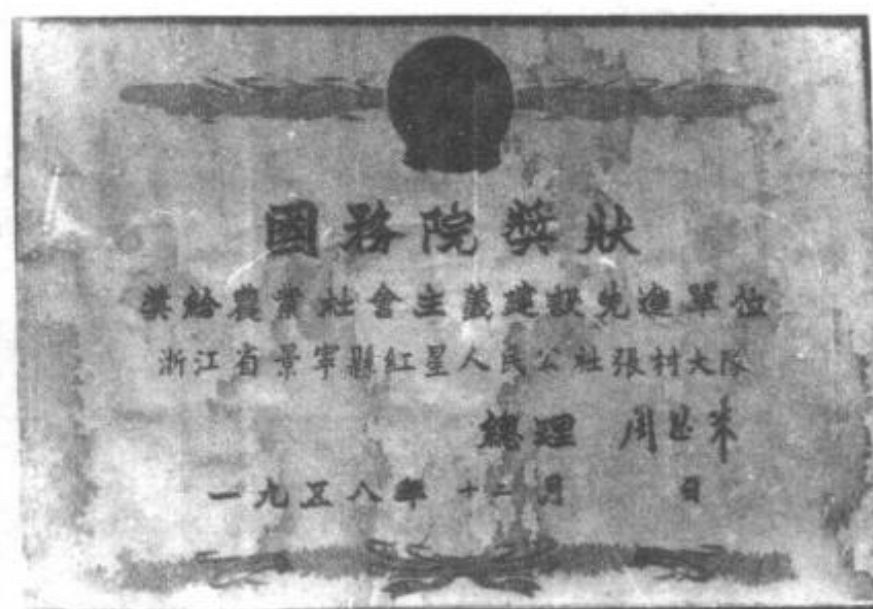 國務院獎狀
獎給農業社會主義建設先進單位
浙江省景寧縣紅星人民公社張村大隊
總理 周恩来
一九五八年 十二月 日